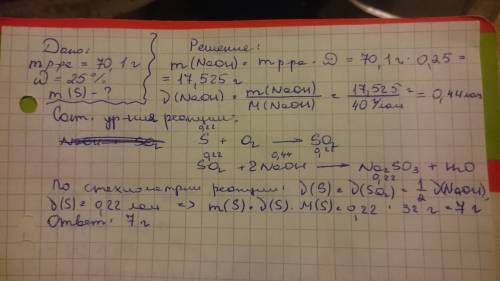 Дано:
m р-ра = 70,1 г
ω = 25%
m(S) - ?
Решение:
m(NaOH) = m р-ра · ω = 70,1 г · 0,25 =
= 17,525 г
ν(NaOH) = m(NaOH)/M(NaOH) = 17,525 г/40 г/моль = 0,44 моль
Сост. ур-ния реакции:
0,22 0,22
S + O₂ → SO₂
0,22 0,44 0,22
SO₂ + 2NaOH → Na₂SO₃ + H₂O
По стехиометрии реакции: ν(S) = ν(SO₂) = 1/2 ν(NaOH),
ν(S) = 0,22 моль => m(S) = ν(S) · M(S) = 0,22 · 32 г = 7 г
Ответ: 7 г